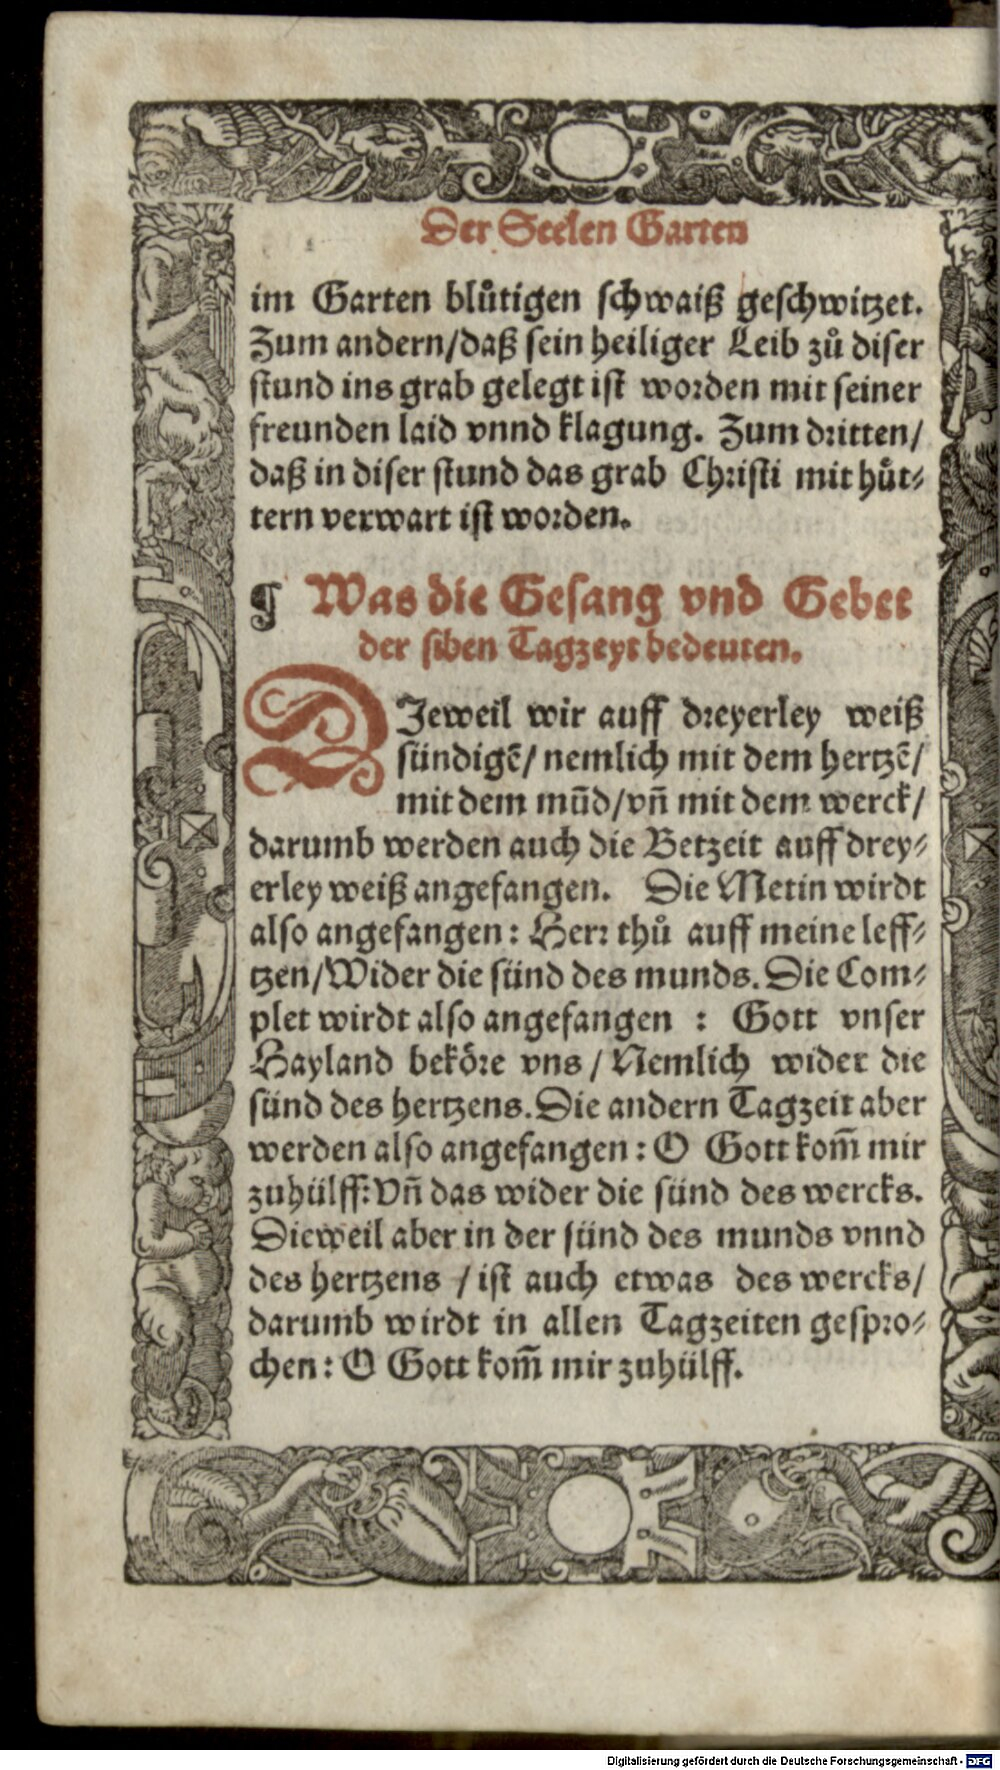 Der Seelen Garten
im Garten blůtigen schwaiß geschwitzet.
Zum andern/daß sein heiliger Leib zů diser
stund ins grab gelegt ist worden mit seiner
freunden laid vnnd klagung. Zum dritten/
daß in diser stund das grab Christi mit hůt⸗
tern verwart ist worden.
¶ Was die Gesang vnd Gebet
der siben Tagzeyt bedeuten.
DJeweil wir auff dreyerley weiß
sündigẽ/ nemlich mit dem hertzẽ/
mit dem mũd/vñ mit dem werck/
darumb werden auch die Betzeit auff drey⸗
erley weiß angefangen. Die Metin wirdt
also angefangen: Herr thů auff meine leff⸗
tzen/Wider die sünd des munds. Die Com⸗
plet wirdt also angefangen : Gott vnser
Hayland beköre vns / Nemlich wider die
sünd des hertzens. Die andern Tagzeit aber
werden also angefangen: O Gott kom̃ mir
zuhülff: Vñ das wider die sünd des wercks.
Dieweil aber in der sünd des munds vnnd
des hertzens / ist auch etwas des wercks/
darumb wirdt in allen Tagzeiten gespro⸗
chen: O Gott kom̃ mir zuhülff.
Digitalisierung gefördert durch die Deutsche Forschungsgemeinschaft - DFG